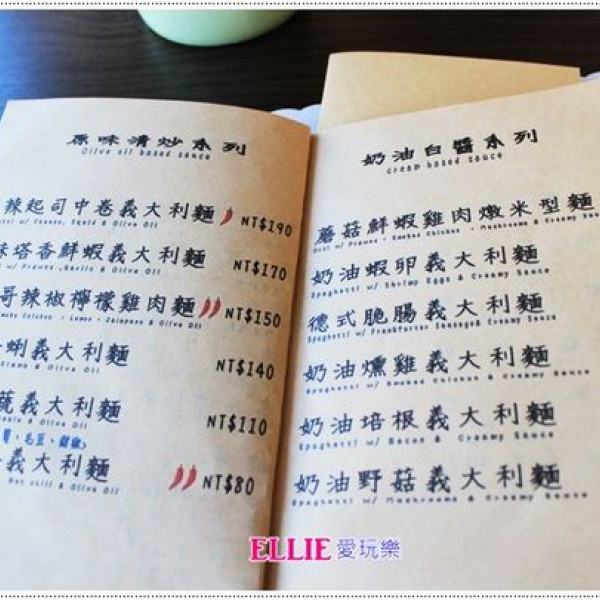 原味清炒系列
Olive oil based sauce
辣起司中卷義大利麵 NT$190
味塔香鮮蝦義大利麵 NT$170
w/ Prawns, Garlic & Olive Oil
哥辣椒檸檬雞肉麵 NT$150
Smoke Chicken, Lemon, Jalapeno & Olive Oil
蜊義大利麵 NT$140
Clams & Olive Oil
義大利麵 NT$110
& Olive Oil
毛豆
義大利麵 NT$80
Hot chili & Olive Oil
奶油白醬系列
cream based sauce
蘑菇鮮蝦雞肉燉米型麵
w/ Prawns, Smoked Chicken, Mushrooms & Creamy Sauce
奶油蝦卵義大利麵
Spaghetti w/ Shrimp Eggs & Creamy Sauce
德式脆腸義大利麵
Spaghetti w/ Frankfurter Sausage & Creamy Sauce
奶油燻雞義大利麵
Spaghetti w/ Smoked Chicken & Creamy Sauce
奶油培根義大利麵
Spaghetti w/ Bacon & Creamy Sauce
奶油野菇義大利麵
Spaghetti w/ Mushrooms & Creamy Sauce
ELLIE愛玩樂